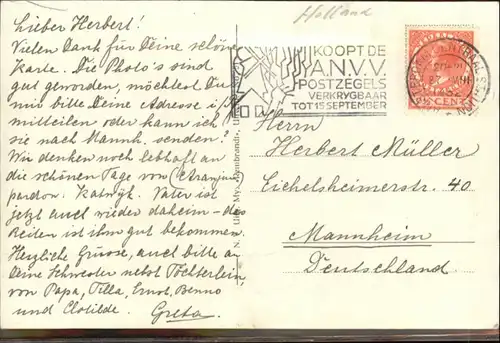 Holland
Lieber Herbert!
Vielen Dank für Deine schöne
Karte. Die Photo's sind
gut geworden, möchtest Du
mir bitte Deine Adresse
mitteilen oder kann ich
sie nach Mannh. senden?
Wir denken noch lebhaft an
die schönen Tage von
pardon. Katwijk. Vater ist
jetzt auch wieder daheim - das
Reiten ist ihm gut bekommen.
Herzliche Grüsse, auch bitte an
Deine Schwester nebst Töchterlein,
von Papa, Tilla, Ernst, Benno
und Clotilde. Greta.
KOOPT DE
A.N.V.V.
POSTZEGELS
VERKRYGBAAR
TOT 15 SEPTEMBER
CENT
Herrn
Herbert Müller
Eichelsheimerstr. 40
Mannheim
Deutschland